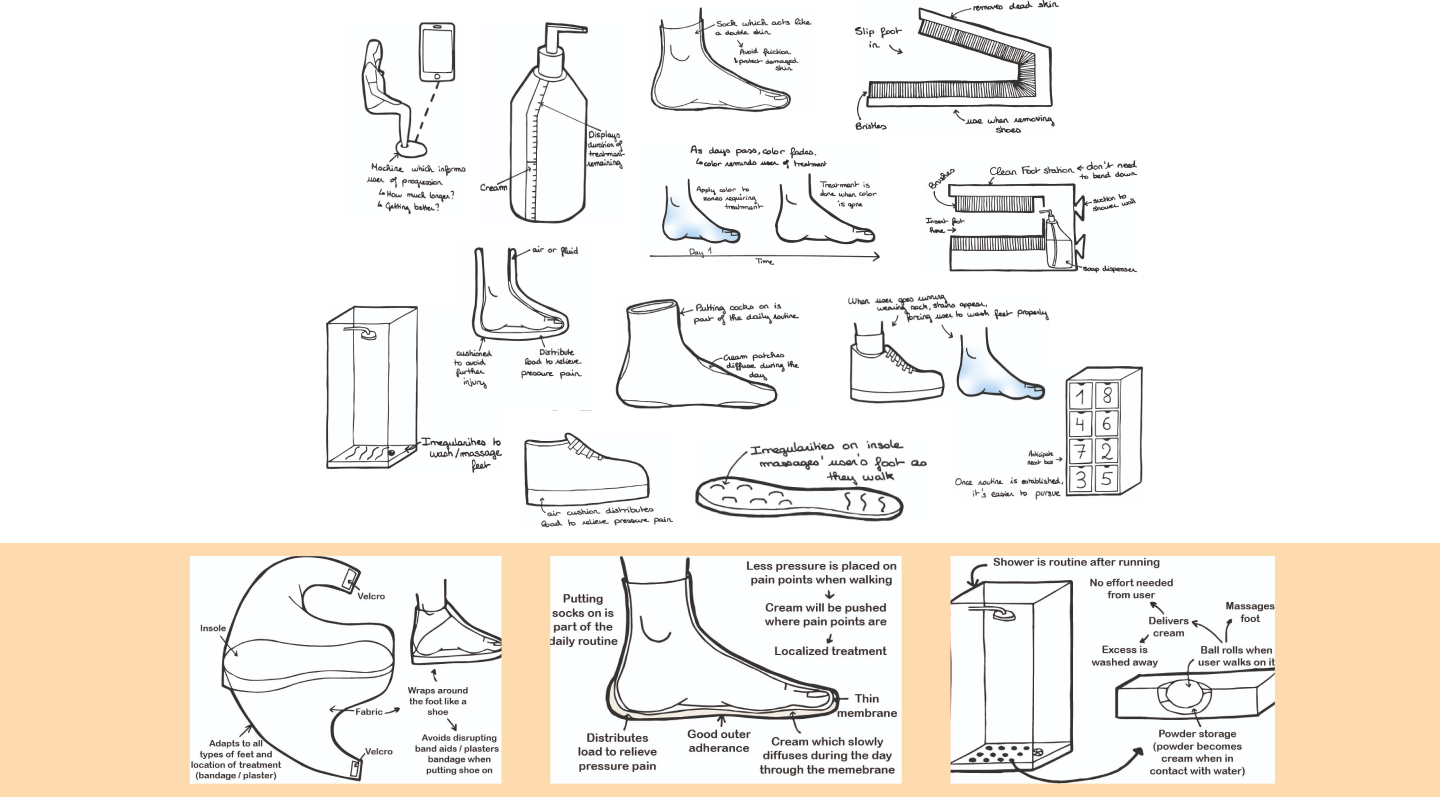 Machine which informs
user of progression
↳ How much longer?
↳ Getting better?
Displays
duration of
treatment
remaining
Cream
Sock which acts like
a double skin
Avoid friction
& protect damaged
skin
removes dead skin
Slip foot
in
Brushes
use when removing
shoes
As days pass, color fades.
↳ color reminds user of treatment
Apply color to
zones requiring
treatment
Treatment is
done when color
is gone
Day 1
Time
Clean Foot station ← don't need
to bend down
Brushes
Insert foot
here →
suction to
shower wall
soap dispenser
air or fluid
cushioned
to avoid
further
injury
Distribute
load to relieve
pressure pain
Putting socks on is
part of the daily routine
Cream patches
diffuse during the
day
When user goes running
wearing sock, stains appear,
forcing user to wash feet properly
Irregularities to
wash/massage
feet
air cushion distributes
load to relieve pressure pain
Irregularities on insole
'massages' user's foot as
they walk
1 8
4 6
7 2
3 5
Anticipate
next box
Once routine is established,
it's easier to pursue
Velcro
Insole
Fabric
Velcro
Adapts to all
types of feet and
location of treatment
(bandage / plaster)
Wraps around
the foot like a
shoe
Avoids disrupting
band aids / plasters
bandage when
putting shoe on
Putting
socks on is
part of the
daily routine
Less pressure is placed on
pain points when walking
Cream will be pushed
where pain points are
Localized treatment
Thin
membrane
Distributes
load to relieve
pressure pain
Good outer
adherance
Cream which slowly
diffuses during the day
through the memebrane
Shower is routine after running
No effort needed
from user
Delivers
cream
Excess is
washed away
Massages
foot
Ball rolls when
user walks on it
Powder storage
(powder becomes
cream when in
contact with water)